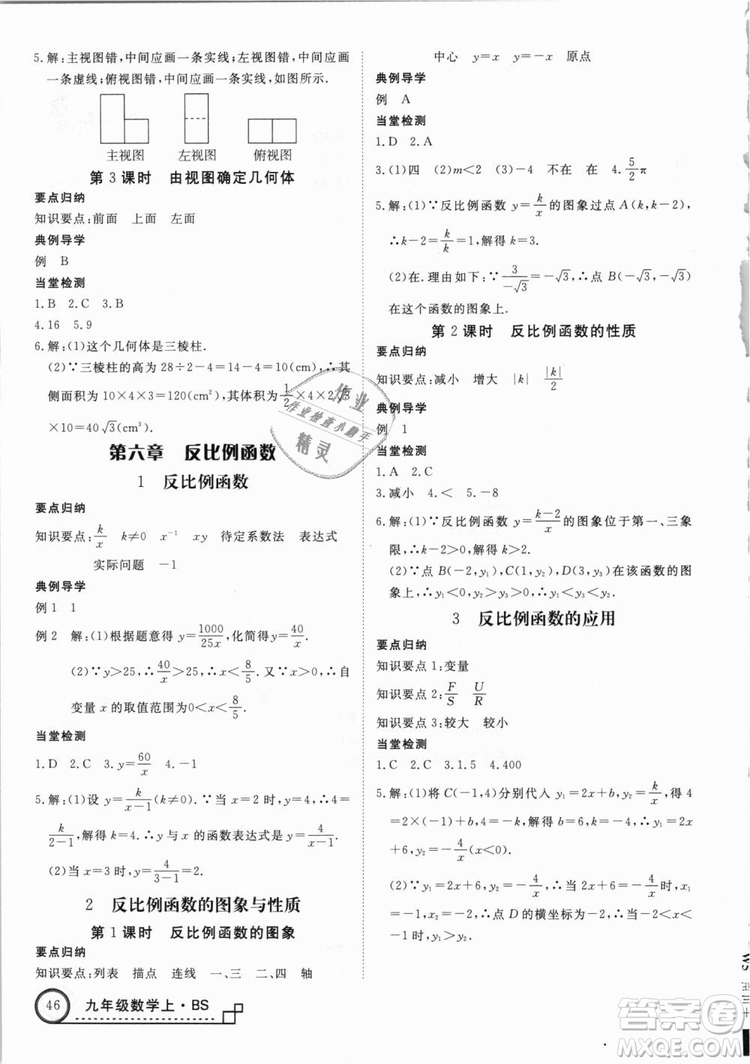 5.解:主视图错,中间应画一条实线;左视图错,中间应画
一条虚线;俯视图错,中间应画一条实线,如图所示.
主视图 左视图 俯视图
第3课时 由视图确定几何体
要点归纳
知识要点:前面 上面 左面
典例导学
例 B
当堂检测
1.B 2.C 3.B
4.16 5.9
6.解:(1)这个几何体是三棱柱.
(2)∵三棱柱的高为28÷2-4-4=10(cm),∴其
侧面积为10×4×3=120(cm²),其体积为1/2×4×2√3
×10=40√3(cm³).
第六章 反比例函数
1 反比例函数
要点归纳
知识要点:k/x k≠0 x⁻¹ xy 待定系数法 表达式
实际问题 -1
典例导学
例1 1
例2 解:(1)根据题意得y=1000/25x,化简得y=40/x.
(2)∵y>25,∴40/x>25,∴x<8/5.又∵x>0,∴自
变量x的取值范围为0<x<8/5.
当堂检测
1.D 2.C 3.y=60/x 4.-1
5.解:(1)设y=k/(x-1)(k≠0).∵当x=2时,y=4,∴4=
k/(2-1),∴k=4,∴y与x的函数表达式是y=4/(x-1).
(2)当x=3时,y=4/(3-1)=2.
2 反比例函数的图象与性质
第1课时 反比例函数的图象
要点归纳
知识要点:列表 描点 连线 一、三 二、四 轴
46 九年级数学上·BS
中心 y=x y=-x 原点
典例导学
例 A
当堂检测
1.D 2.A
3.(1)四 (2)m<2 (3)-4 不在 在 4.5/2π
5.解:(1)∵反比例函数y=k/x的图象过点A(k,k-2),
∴k-2=k/k=1,∴k=3.
(2)在.理由如下:∵3/-√3=-√3,∴点B(-√3,-√3)
在这个函数的图象上.
第2课时 反比例函数的性质
要点归纳
知识要点:减小 增大 |k| |k|/2
典例导学
例 1
当堂检测
1.A 2.D
3.减小 4.< 5.-8
6.解:(1)∵反比例函数y=(k-2)/x的图象位于第一、三象
限,∴k-2>0,∴k>2.
(2)∵点B(-2,y₁),C(1,y₂),D(3,y₃)在该函数的图
象上,∴y₁<y₃<y₂.
3 反比例函数的应用
要点归纳
知识要点1:变量
知识要点2:F/S U/R
知识要点3:较大 较小
当堂检测
1.C 2.C 3.1.5 4.400
5.解:(1)将C(-1,4)分别代入y₁=2x+b,y₂=k/x,得4
作业
作业检查小助手
精灵
答案圈
MXQE.COM